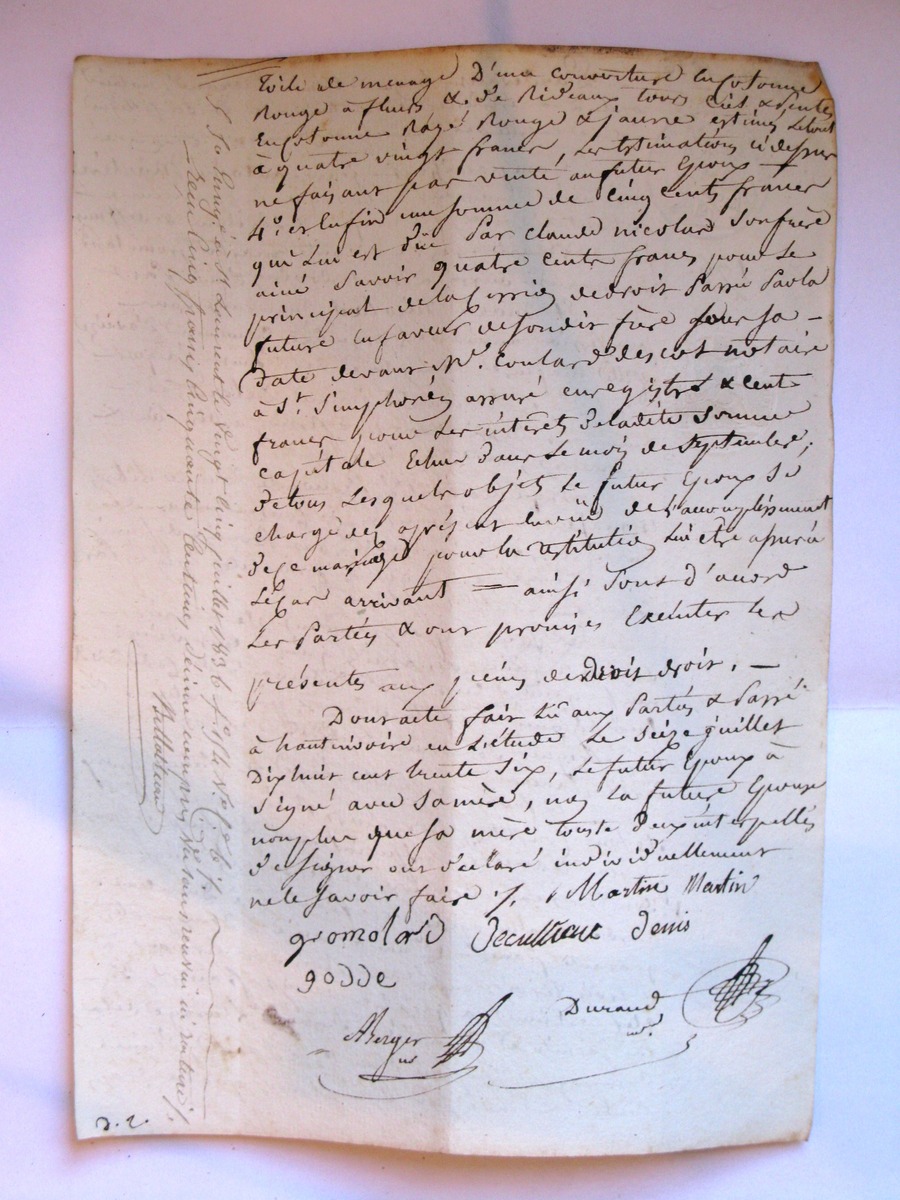 toile de menage D'une couverture en cotonne
Rouge à fleurs & de Rideaux tours ciels & pentes
En cotonne Rayé Rouge & jaune estimés le tout
à quatre vingt francs, les Estimations ci dessus
ne faisant pas vente au futur Epoux —
4.º et Enfin une somme de cinq cents francs
qui Lui est düe Par claude nicolard son frère
ainé Savoir quatre cents francs pour le
principal de la de droit Passée Par la
future En faveur de son dit frère sous sa —
Date devant Mᵉ. Coulard descos notaire
à Sᵗ. Simphorien assuré enregistré & cent
francs pour Les intérêts de ladite Somme
capitale Echus dans Le mois de septembre;
De tous Lesquels objets Le futur Epoux se
charge dès àprésent En vüe de l'accomplissement
De ce mariage pour la restitution Lui être assuré
Le cas arrivant = ainsi Sont d'accord
Les Parties & ont promis Exécuter Les
présentes aux peines de Droit droit. —
Dont acte fait Lû aux Parties & Passé
à hauterivoire en L'étude Le seize juillet
Dixhuit cent trente Six, Le futur Epoux à
Signé avec sa mère, non La future Epouse
non plus que sa mère toute Deux interpellés
de signer ont déclaré individuellement
ne le Savoir faire ./. Martin Martin
gromolard Decultieux Denis
godde
Durand
nʳᵉ.
ABerger
nʳᵉ
D. 2.
à Sᵗ. Laurent le Vingt cinq juillet 1836 fº
Reçu cinq francs cinquante centimes Décime compris